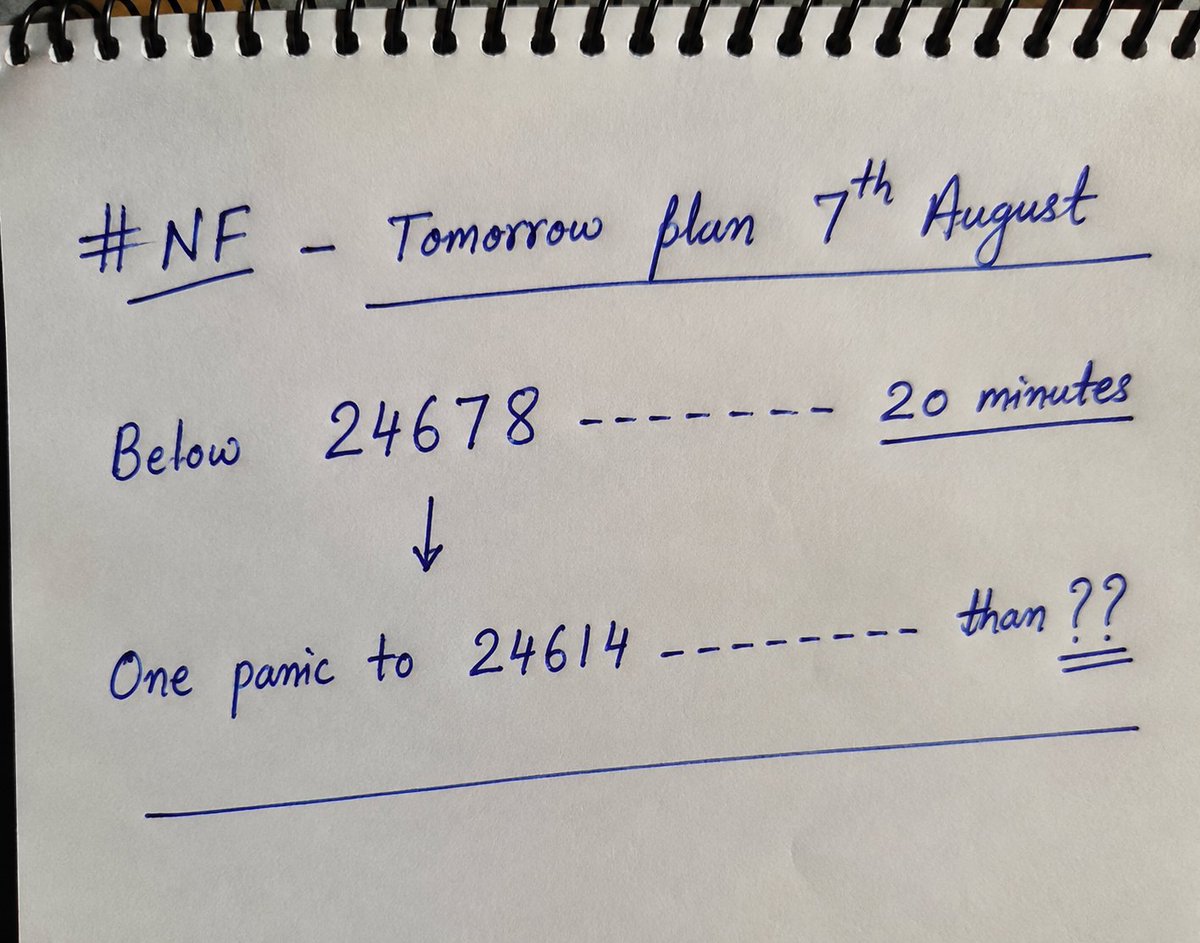 #NF - Tomorrow plan 7th August
Below 24678 ------- 20 minutes
↓
One panic to 24614 -------- than ??